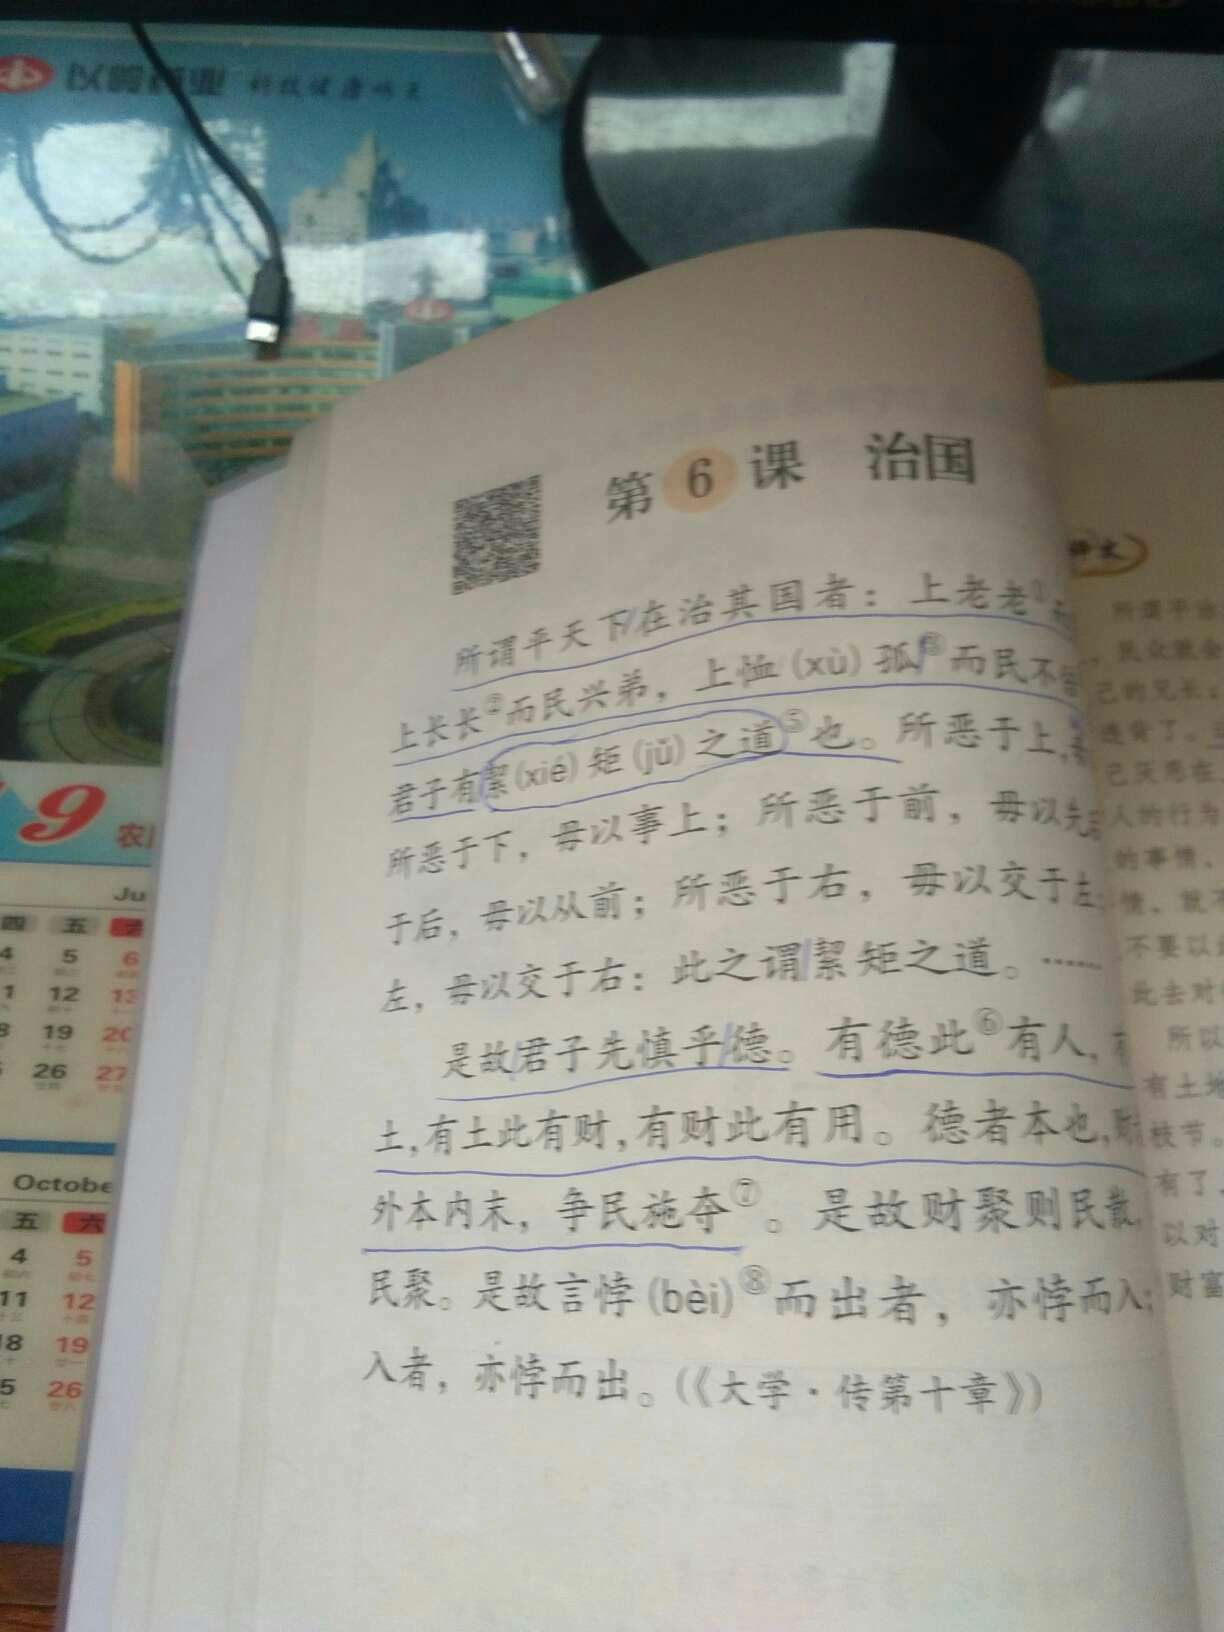 以岭药业 科技健康明天
第6课 治国
所谓平天下在治其国者：上老老①
上长长②而民兴弟，上恤(xù)孤③而民不
君子有絜(xié)矩(jǔ)之道⑤也。所恶于上，
所恶于下，毋以事上；所恶于前，毋以先
于后，毋以从前；所恶于右，毋以交于左；
左，毋以交于右：此之谓絜矩之道。……
是故君子先慎乎德。有德此⑥有人，有
土，有土此有财，有财此有用。德者本也，财
外本内末，争民施夺⑦。是故财聚则民散，
民聚。是故言悖(bèi)⑧而出者，亦悖而入；
入者，亦悖而出。(《大学·传第十章》)
译文
所谓平治
，民众就会
己的兄长，
违背了。
己厌恶在
人的行为
的事情、
情，就不
不要以
此去对
所以
有土地
枝节。
有了，
以对
财富
9
农
Ju
四 五 六
4 5 6
11 12 13
18 19 20
26 27
Octobe
五 六
4 5
11 12
18 19
26